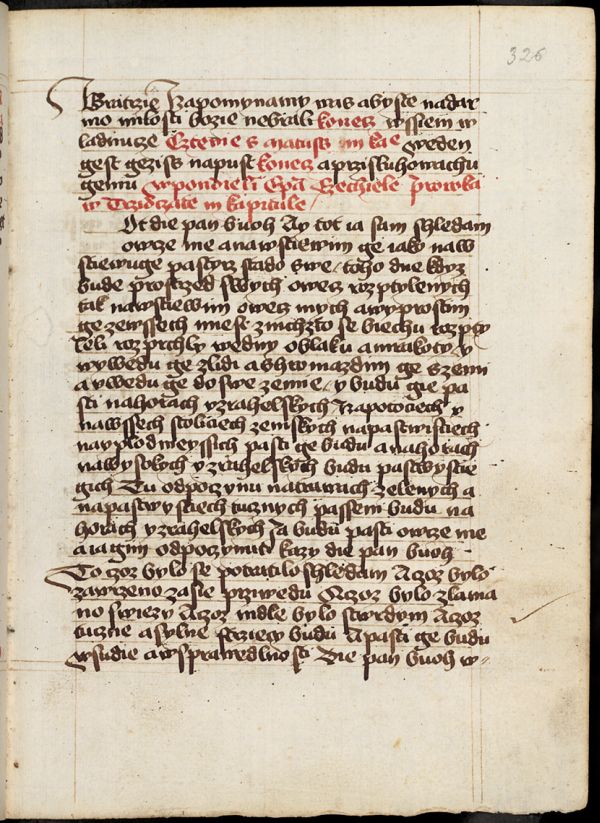 326
Bratrzie Napomynamy was abyste nadar
mo milosti bozie nebrali konecz wssiem w
ladnucze Cztenie s Matussi in kae weden
gest geziss napust konecz a przisluhowachu
gemu w pondieli Epa Ezechiele proroka
w Trzidczate in kapitule
Ot die pan buoh Ay tot ia sam shledam
owcze me a nawstiewim ge iako naw
stiewuge pastyrz stado swe toho dne kdyz
bude prostrzed swych owecz rozptylenych
tak nawstiewim owecz mych a wyprostim
ge ze wssech miest z nichzto se biechu rozpty
leli rozprchly wedny oblaku a mrakoty y
wywedu ge z lidi a shromazdim ge s zemi
a vwedu ge do swe zemie y budu gie pa
sti na horach yzrahelskych Na potociech y
na wssech stoliciech zemskych na pastwistiech
nayplodnieyssich pasti ge budu a na horach
na wysokych yzrahelskych budu pastwystie
gich Tu odpoczynu na trawach zelenych a
na pastwystiech tucznych passeni budu na
horach yzrahelskych Ja budu pasti owcze me
a ia gim odpoczynuti kazy die pan buoh
To czoz bylo se potratilo shledam A czoz bylo
zawrzeno zasie przywedu A czoz bylo zlama
no swiezy A czoz mdle bylo stwrdym A czoz
tuczne a sylne strziecy budu A pasti ge budu
w sudie a w sprawedlnosti Die pan buoh w